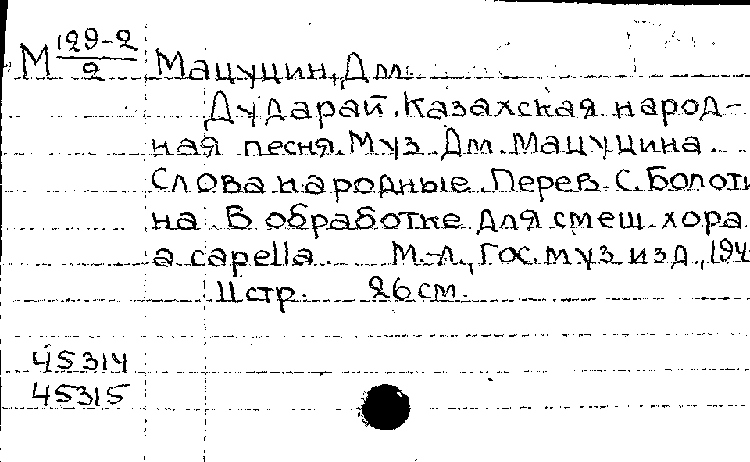 М 129-2/2 Мацуцин, Дм.
Дударай. Казахская народ-
ная песня. Муз. Дм. Мацуцина.
Слова народные. Перев. С. Болоти
на. В обработке для смеш. хора
a capella. М.-Л., Гос. муз. изд., 194
11 стр. 26 см.
45314
45315